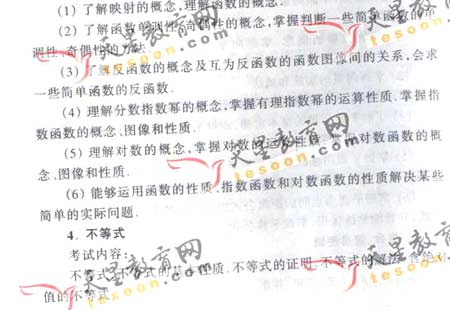 (1) 了解映射的概念,理解函数的概念.
(2) 了解函数单调性、奇偶性的概念,掌握判断一些简单函数的单
调性、奇偶性的方法.
(3) 了解反函数的概念及互为反函数的函数图像间的关系,会求
一些简单函数的反函数.
(4) 理解分数指数幂的概念,掌握有理指数幂的运算性质.掌握指
数函数的概念、图像和性质.
(5) 理解对数的概念,掌握对数的运算性质.掌握对数函数的概
念、图像和性质.
(6) 能够运用函数的性质、指数函数和对数函数的性质解决某些
简单的实际问题.
4. 不等式
考试内容:
不等式.不等式的基本性质.不等式的证明.不等式的解法.含绝对
值的不等式.
天星教育网
tesoon.com
天星教育网
tesoon.com
天星教育网
tesoon.com
天星教育网
tesoon.com
天星教育网
tesoon.com